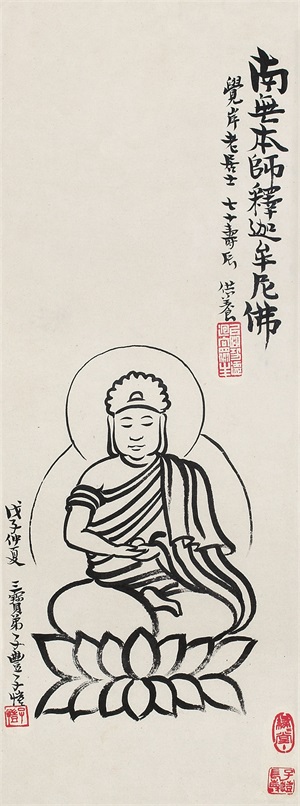 南無本師釋迦牟尼佛
覺岸老居士 七十壽辰 供養
戊子仲夏 三寶弟子豐子愷
子愷